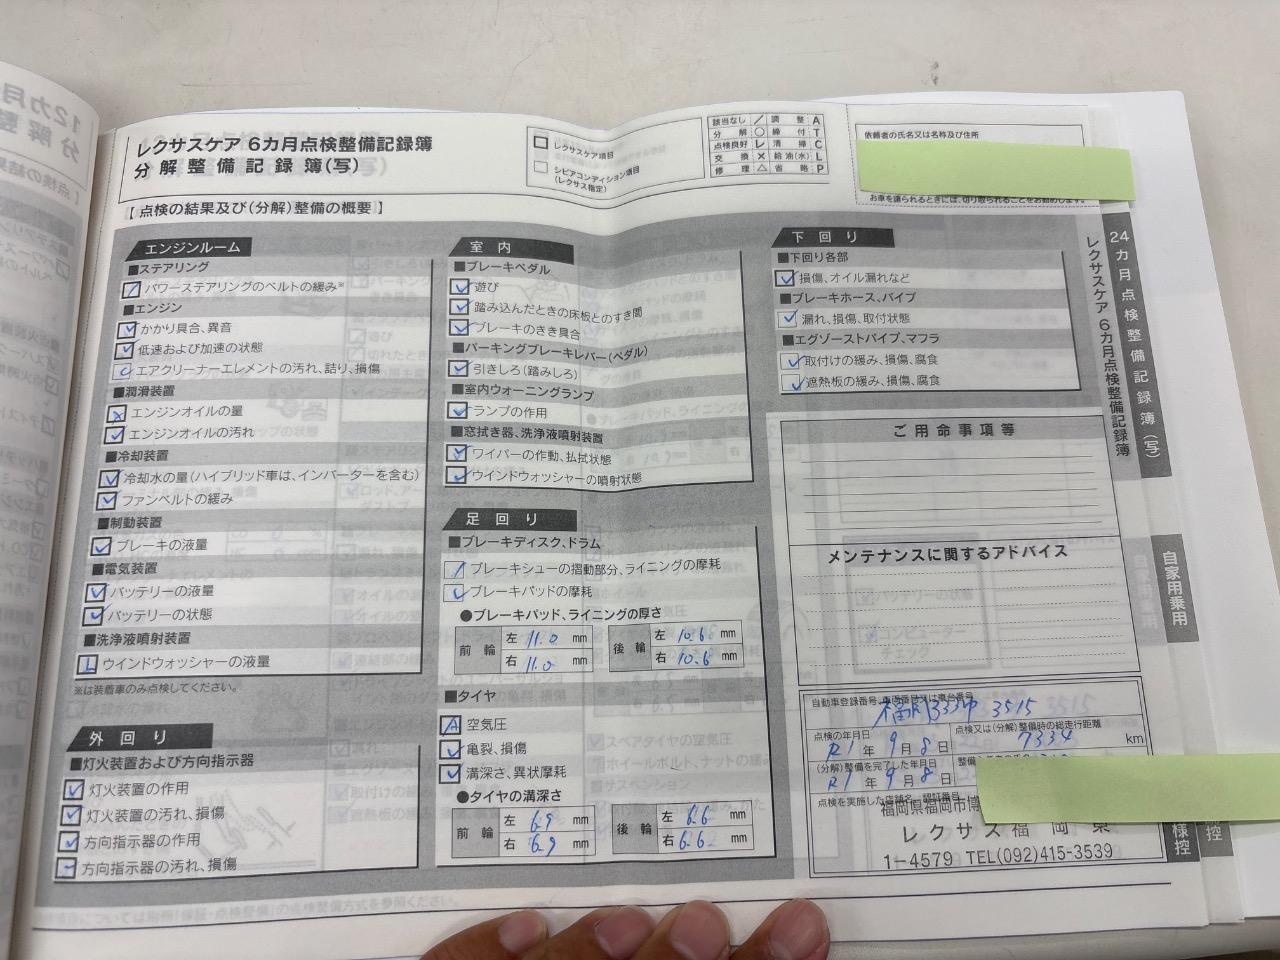 レクサスケア 6カ月点検整備記録簿
分解整備記録簿(写)
レクサスケア項目
シビアコンディション項目
(レクサス指定)
該当なし ／ 調整 A
分解 ○ 締付 T
点検良好 レ 清掃 C
交換 × 給油(水) L
修理 △ 省略 P
依頼者の氏名又は名称及び住所
お車を譲られるときには、切り取られることをお勧めします。
【 点検の結果及び(分解)整備の概要 】
エンジンルーム
■ステアリング
パワーステアリングのベルトの緩み※
■エンジン
かかり具合、異音
低速および加速の状態
エアクリーナーエレメントの汚れ、詰り、損傷
■潤滑装置
エンジンオイルの量
エンジンオイルの汚れ
■冷却装置
冷却水の量(ハイブリッド車は、インバーターを含む)
ファンベルトの緩み
■制動装置
ブレーキの液量
■電気装置
バッテリーの液量
バッテリーの状態
■洗浄液噴射装置
L ウインドウォッシャーの液量
※は装着車のみ点検してください。
外回り
■灯火装置および方向指示器
灯火装置の作用
灯火装置の汚れ、損傷
方向指示器の作用
方向指示器の汚れ、損傷
室内
■ブレーキペダル
遊び
踏み込んだときの床板とのすき間
ブレーキのきき具合
■パーキングブレーキレバー(ペダル)
引きしろ(踏みしろ)
■室内ウォーニングランプ
ランプの作用
■窓拭き器、洗浄液噴射装置
ワイパーの作動、払拭状態
ウインドウォッシャーの噴射状態
足回り
■ブレーキディスク、ドラム
ブレーキシューの摺動部分、ライニングの摩耗
ブレーキパッドの摩耗
●ブレーキパッド、ライニングの厚さ
前輪 左 11.0 mm 後輪 左 10.6 mm
右 11.0 mm 右 10.6 mm
■タイヤ
A 空気圧
亀裂、損傷
溝深さ、異状摩耗
●タイヤの溝深さ
前輪 左 6.9 mm 後輪 左 6.6 mm
右 6.9 mm 右 6.6 mm
下回り
■下回り各部
損傷、オイル漏れなど
■ブレーキホース、パイプ
漏れ、損傷、取付状態
■エグゾーストパイプ、マフラ
取付けの緩み、損傷、腐食
遮熱板の緩み、損傷、腐食
ご用命事項等
メンテナンスに関するアドバイス
自動車登録番号、車両番号又は車台番号
3515
点検の年月日
R1年 9月 8日
点検又は(分解)整備時の総走行距離
7334 km
(分解)整備を完了した年月日
R1年 9月 8日
点検を実施した
福岡県福岡市博
レクサス福岡東
1-4579 TEL(092)415-3539
24カ月点検整備記録簿(写)
レクサスケア 6カ月点検整備記録簿
自家用乗用
様控